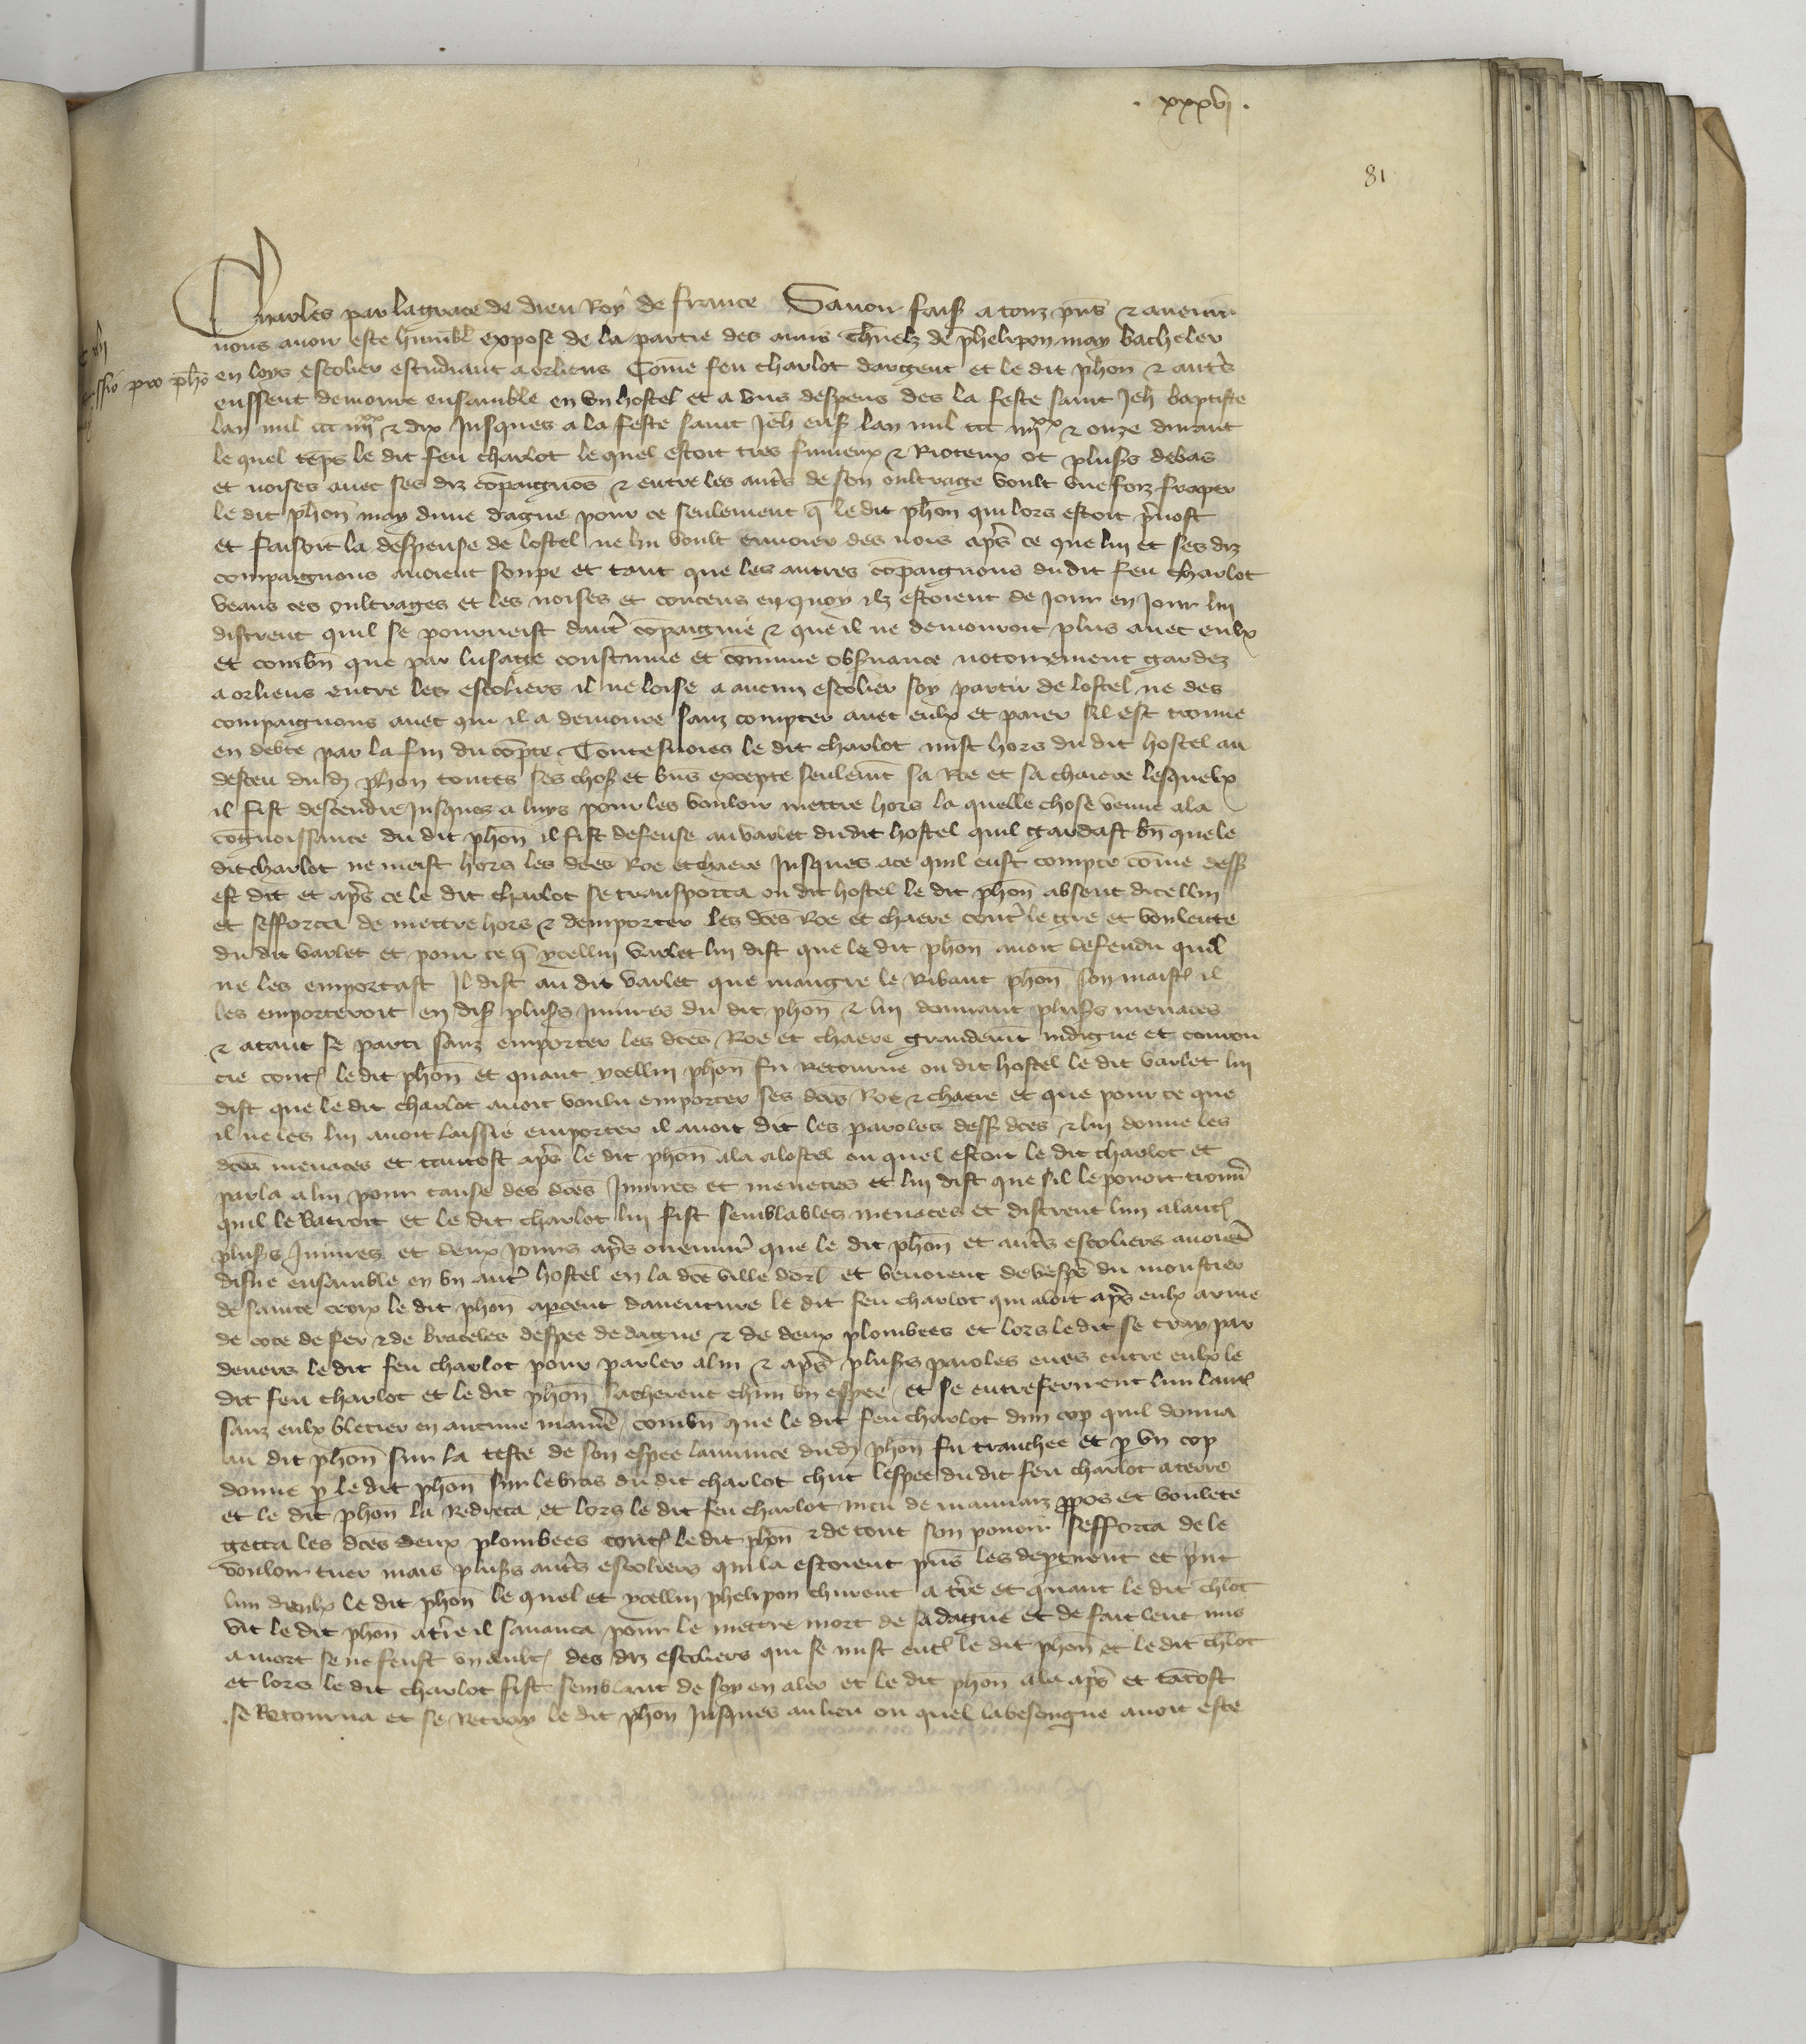 . xxxvj .
81
Charles par la grace de dieu Roy de france Sauoir fais' a touz pn̄s & auenir
nous auoir este humbl' expose de la partie des amis charnelz de phelipon may bacheler
en loys escolier estudiant a orliens Come feu charlot dargent et le dit phōn & aut's
eussent demoure ensamble en vn hostel et a vns despens des la feste saint Jeh baptiste
lan mil ccc iiijxx & dix Jusques a la feste saint Jeh ens' lan mil ccc iiijxx & onze durant
le quel tēps le dit feu charlot le quel estoit tres fumeux & Rioteux ot plus's debas
et noises auec ses diz cōpaignōs & entre les aut's de son oultrage voult vne foiz fraper
le dit phōn may dune dague pour ce seulement q̄ le dit phōn qui lors estoit p'uost
et faisoit la despense de lostel ne lui voult enuoier des nois ap's ce que lui et ses diz
compaignons auoient soupe et tant que les autres cōpaignons du dit feu charlot
veans ces oultrages et les noises et contens en quoy ilz estoient de Jour en Jour lui
distrent quil se pourueist daut' cōpaignie & que il ne demouroit plus auec eulx
et combn̄ que par lusaige coustume et cōmune obs'uance notoirement gardez
a orliens entre les escoliers il ne loise a aucun escolier soy partir de lostel ne des
compaignons auec qui il a demoure sanz compter auec eulx et paier sil est trouue
en debte par la fin du cōpte Toutesuoies le dit charlot mist hors du dit hostel au
desceu du d' phōn toutes ses chos' et bn̄s excepte seulemt sa Roe et sa chaiere lesquelx
il fist descendre Jusques a luys pour les vouloir mettre hors la quelle chose venue a la
cōgnoissance du dit phōn il fist defense au varlet du dit hostel quil gardast bn̄ que le
dit charlot ne meist hors les dc̄es Roe et chaiere Jusques a ce quil eust compte cōme dess'
est dit et ap's ce le dit charlot se transporta ou dit hostel le dit phōn absent dicellui
et sefforca de mettre hors & demporter les dc̄es Roe et chaiere cont' le gre et voulente
du dit varlet et pour ce q̄ ycellui varlet lui dist que le dit phōn auoit defendu quil
ne les emportast Il dist au dit varlet que maugre le Ribaut phōn son maist' il
les emporteroit en dis' plus's Iniures du dit phōn & lui donnant plus's menaces
& atant se parti sanz emporter les dc̄es Roe et chaiere grandemt indigne et courou
cie cont' le dit phōn et quant ycellui phōn fu Retourne ou dit hostel le dit varlet lui
dist que le dit charlot auoit voulu emporter ses dc̄es Roe & chaiere et que pour ce que
il ne les lui auoit laissie emporter il auoit dit les paroles dess' dc̄es & lui donne les
dc̄es menaces et tantost ap's le dit phōn ala a lostel ou quel estoit le dit charlot et
parla a lui pour cause des dc̄es Iniures et menaces et lui dist que sil le pouoit trouu'
quil le batroit et le dit charlot lui fist semblables menaces et distrent lun a laut'
plus's Iniures et deux Jours ap's auenir' que le dit phōn et aut's escoliers auoiēt
disne ensamble en vn aut' hostel en la dc̄e ville dorl' et venoient de vesp's du moustier
de sainte croix le dit phōn apceut dauenture le dit feu charlot qui aloit ap's eulx arme
de cote de fer & de braceles despee de dague & de deux plombees et lors le dit se tray par
deuers le dit feu charlot pour parler a lui & ap's plus's paroles eues entre eulx le
dit feu charlot et le dit phōn sacherent chun vn espee et se entreferirent lun laut'
sanz eulx blecier en aucune manie' combn̄ que le dit feu charlot dun cop quil donna
au dit phōn sur la teste de son espee laumuce du d' phōn fu tranchee et p vn cop
donne p le dit phōn sur le bras du dit charlot chut lespee du dit feu charlot a terre
et le dit phōn la Redreca et lors le dit feu charlot meu de mauuaiz ppos et voulētē
getta les dc̄es deux plombees cont' le dit phōn & de tout son pouoir sefforca de le
vouloir tuer mais plus's aut's escoliers qui la estoient pn̄s les dep̄tirent et p'nt
lun deulx le dit phōn le quel et ycellui phelipon churent a t're et quant le dit ch'lot
vit le dit phōn a t're il sauanca pour le mettre mort de sa dague et de fait leut mis
a mort se ne feust vn ault' des diz escoliers qui se mist ent' le dit phōn et le dit ch'lot
et lors le dit charlot fist semblant de soy en aler et le dit phōn ala ap's et tātost
se Retourna et se Retray le dit phōn Jusques au lieu ou quel la besongne auoit este